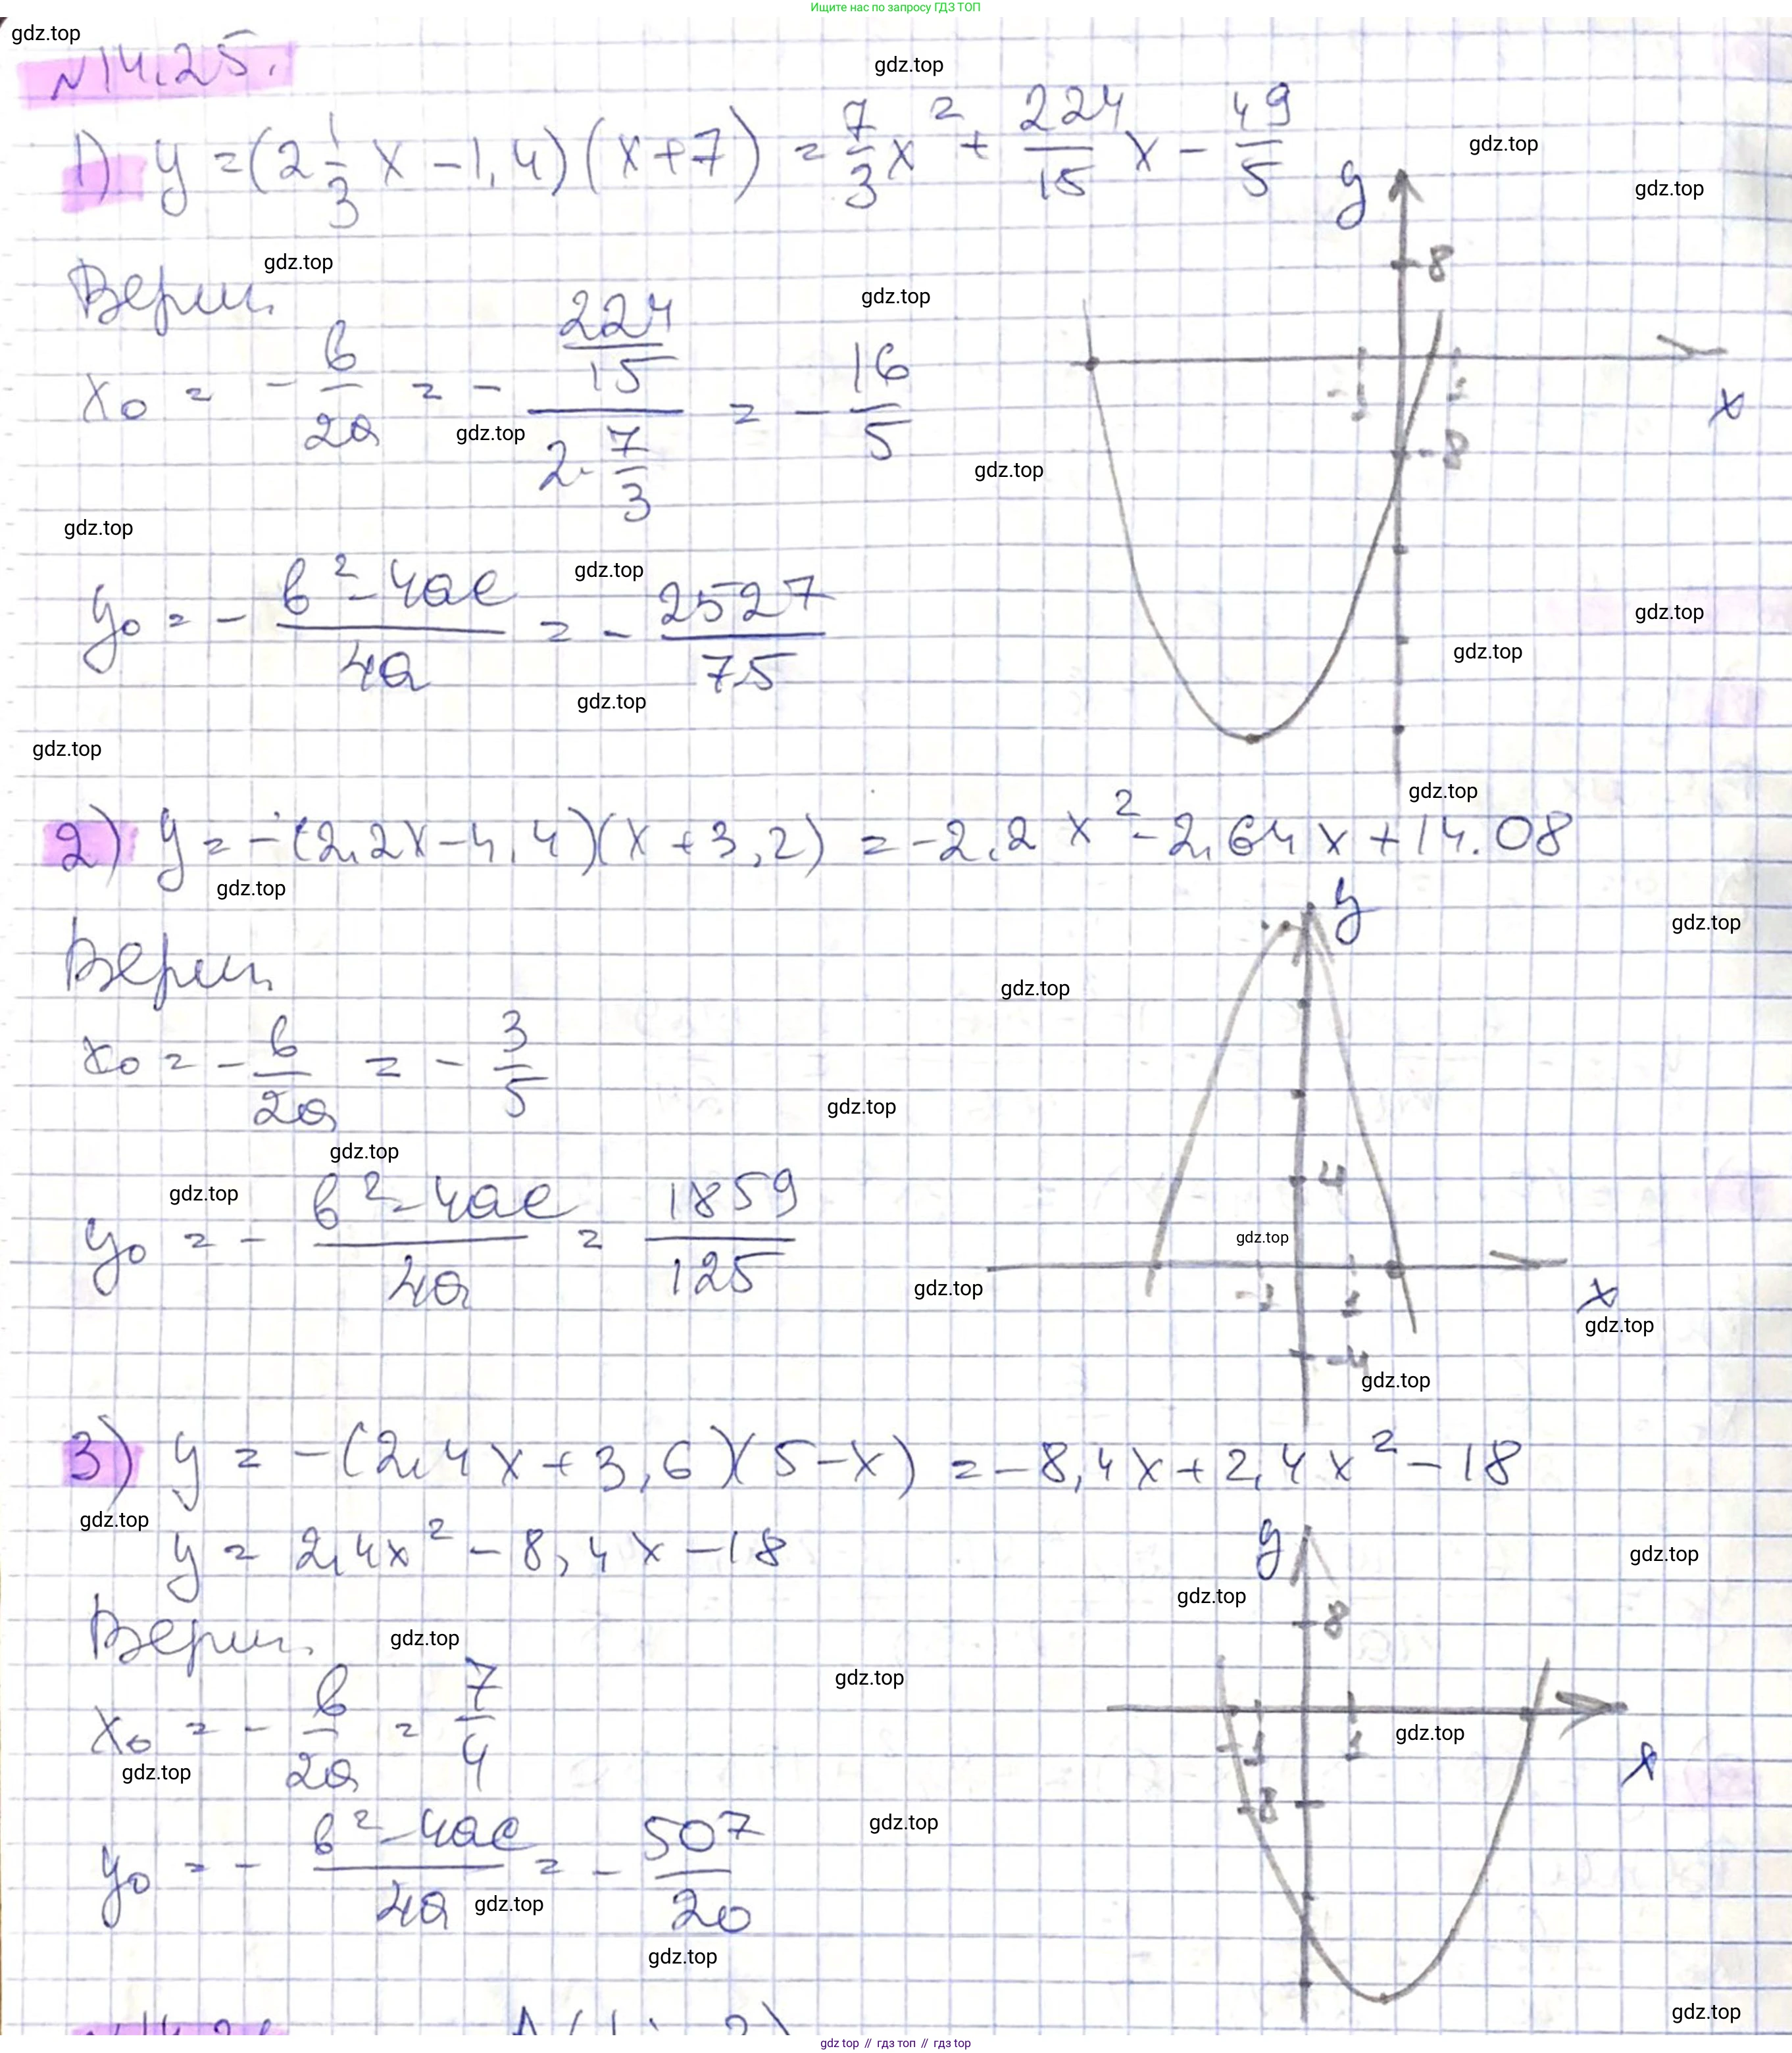 Ищите нас по запросу ГДЗ ТОП
gdz.top
N14.25.
gdz.top
1) y = (2 1/3 x - 1,4)(x + 7) = 7/3 x² + 224/15 x - 49/5
gdz.top
y
gdz.top
8
gdz.top
Верш.
gdz.top
x₀ = - b/2a = - (224/15)/(2·7/3) = - 16/5
gdz.top
-1 1
x
-8
gdz.top
gdz.top
gdz.top
y₀ = - (b² - 4ac)/4a = - 2527/75
gdz.top
gdz.top
gdz.top
gdz.top
gdz.top
2) y = -(2,2x - 4,4)(x + 3,2) = -2,2x² - 2,64x + 14.08
gdz.top
y
gdz.top
Верш.
gdz.top
x₀ = - b/2a = - 3/5
gdz.top
gdz.top
gdz.top
4
y₀ = - (b² - 4ac)/4a = 1859/125
gdz.top
gdz.top
-1 1
x
gdz.top
-4
gdz.top
3) y = -(2,4x + 3,6)(5 - x) = -8,4x + 2,4x² - 18
gdz.top
y = 2,4x² - 8,4x - 18
y
gdz.top
gdz.top
8
Верш.
gdz.top
gdz.top
x₀ = - b/2a = 7/4
gdz.top
-1 1
gdz.top
x
-8
y₀ = - (b² - 4ac)/4a = - 507/20
gdz.top
gdz.top
gdz.top
gdz.top
gdz top // гдз топ // гдз top